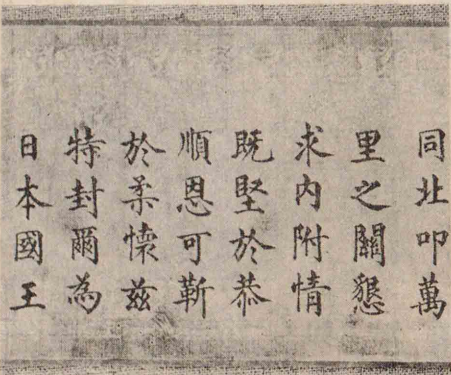 同北叩萬
里之關懇
求內附情
既堅於恭
順恩可靳
於柔懷茲
特封爾為
日本國王